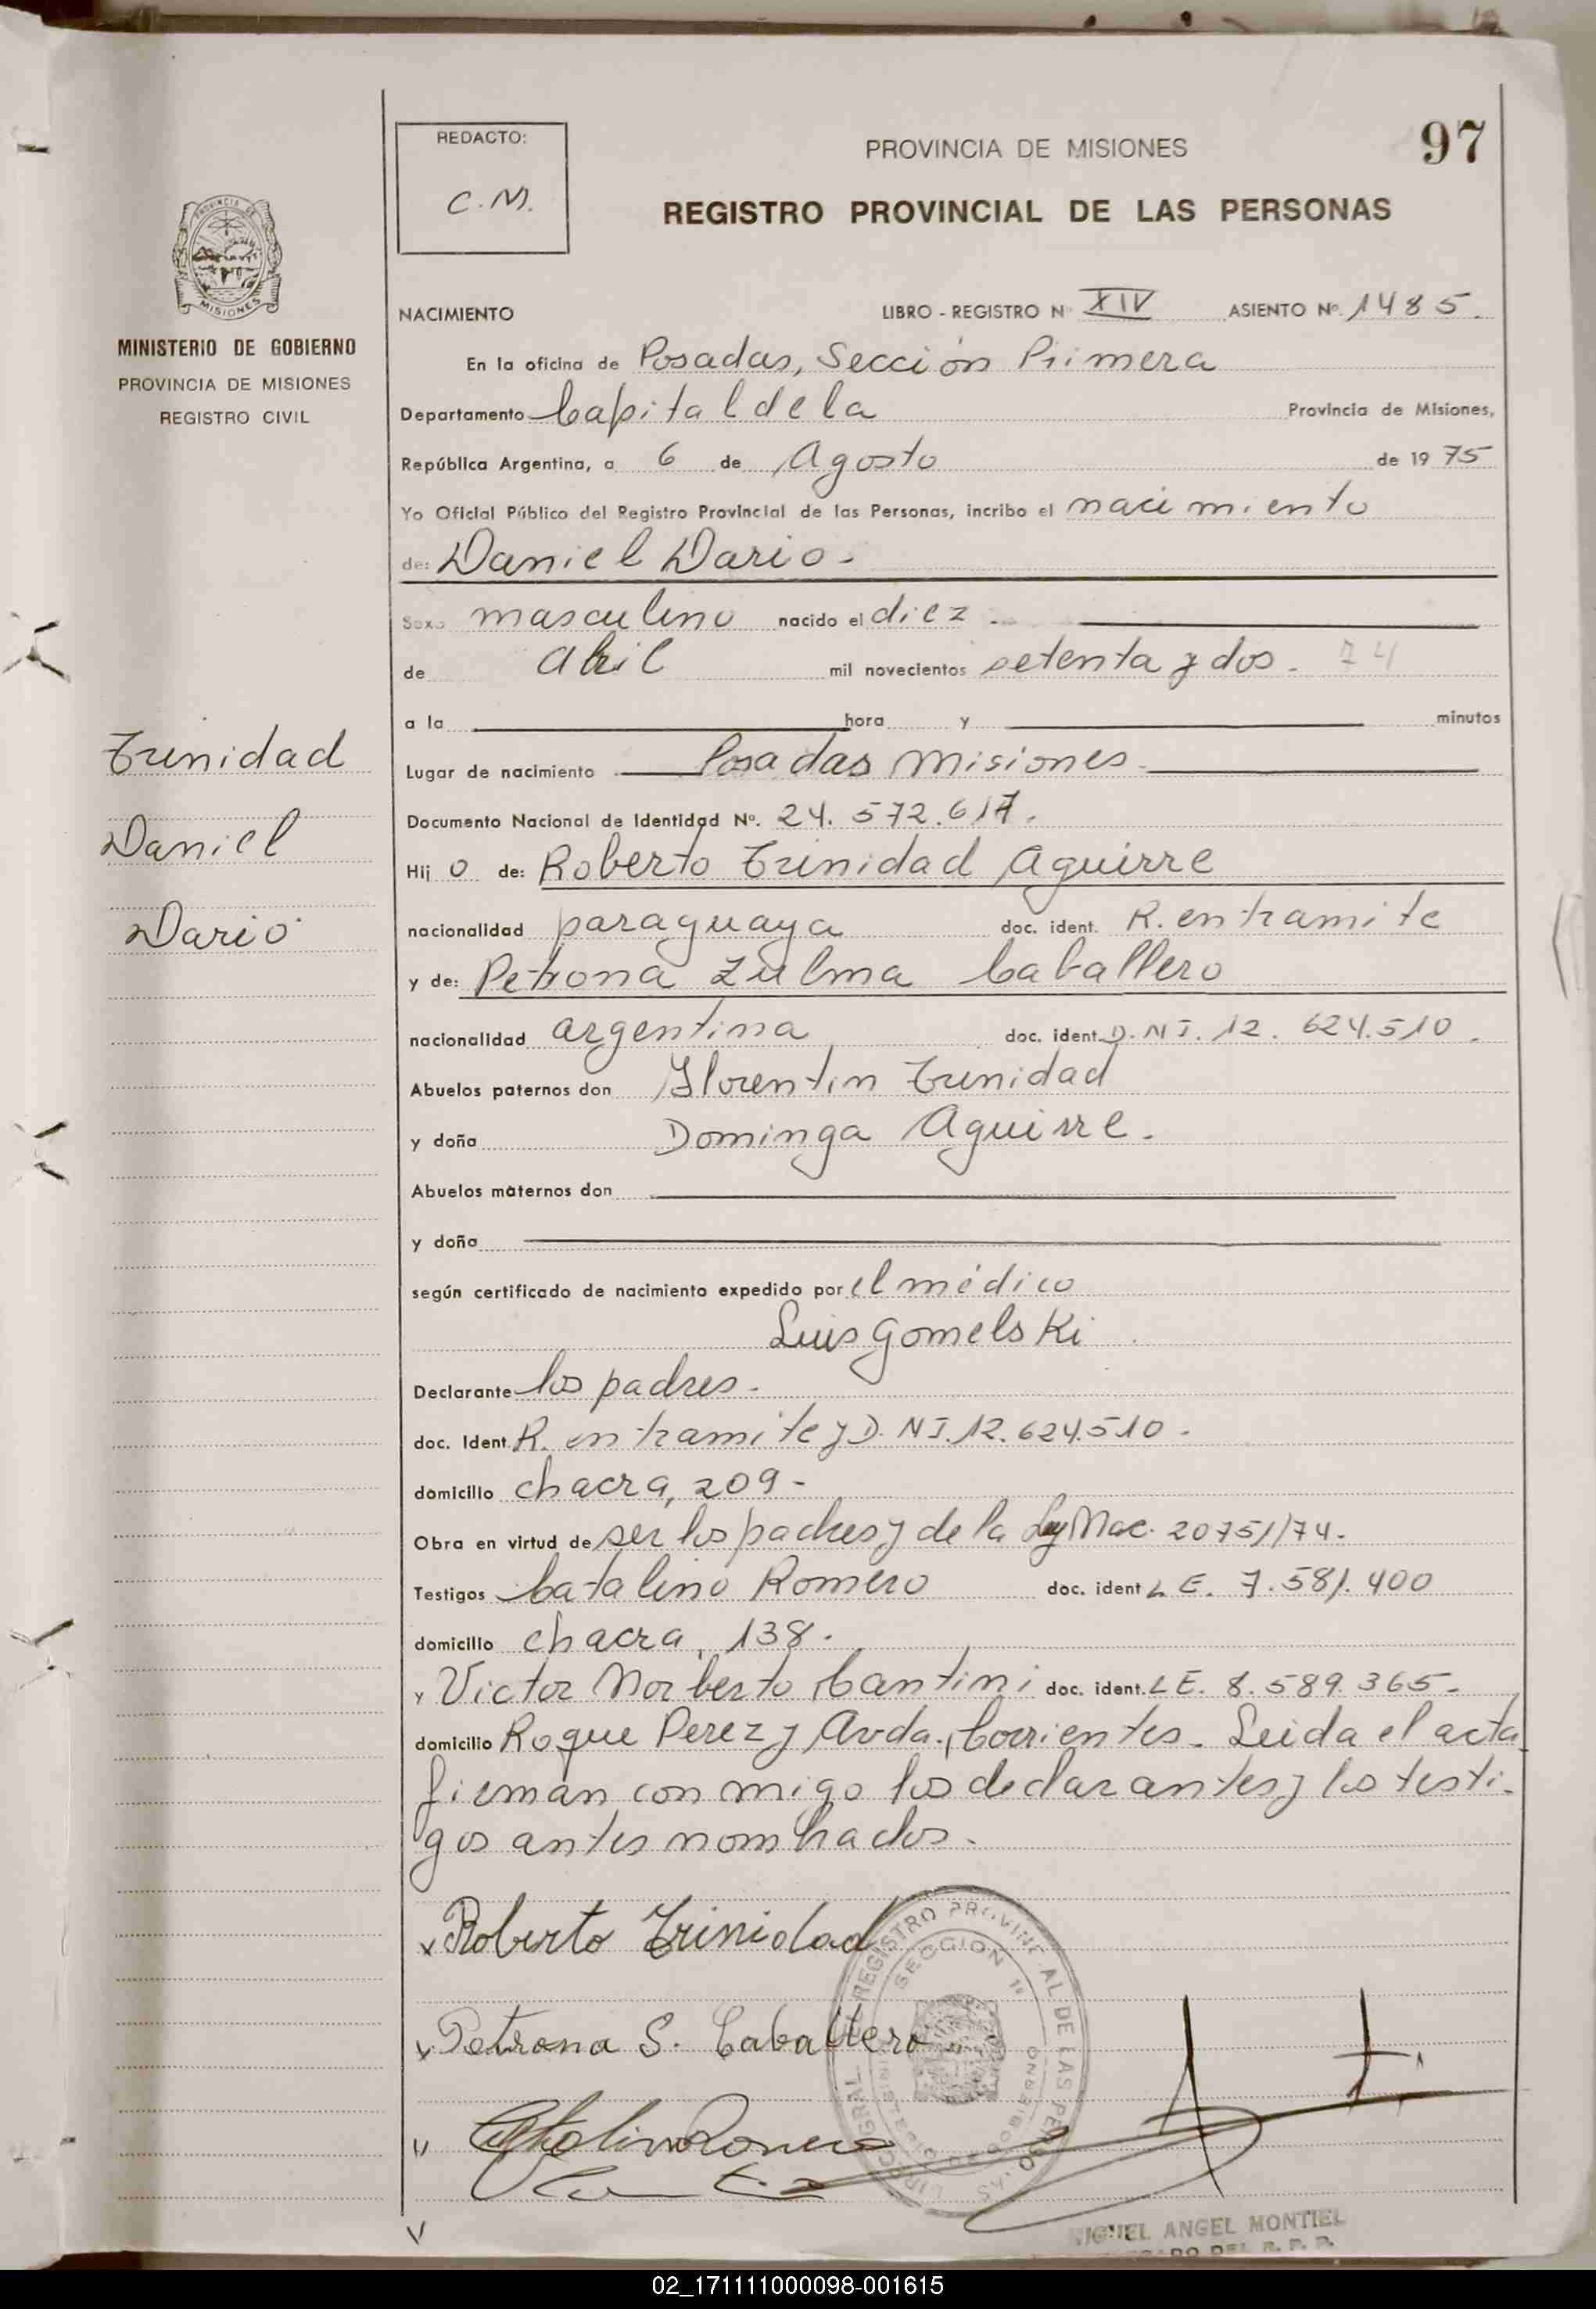 REDACTO:
C.M.
PROVINCIA DE MISIONES
97
REGISTRO PROVINCIAL DE LAS PERSONAS
MISIONES
MINISTERIO DE GOBIERNO
PROVINCIA DE MISIONES
REGISTRO CIVIL
NACIMIENTO LIBRO - REGISTRO Nº XIV ASIENTO Nº. 1485.
En la oficina de Posadas, Sección Primera
Departamento Capital de la Provincia de Misiones,
República Argentina, a 6 de Agosto de 19 75
Yo Oficial Público del Registro Provincial de las Personas, incribo el nacimiento
de: Daniel Dario.
Sexo masculino nacido el diez
de abril mil novecientos setenta y dos. 74
a la hora y minutos
Trinidad
Daniel
Dario
Lugar de nacimiento Posadas Misiones
Documento Nacional de Identidad Nº. 24.572.617.
Hij o de: Roberto Trinidad Aguirre
nacionalidad paraguaya doc. ident. R. en tramite
y de: Petrona Zulma Caballero
nacionalidad argentina doc. ident. D.N I. 12. 624.510.
Abuelos paternos don Florentin Trinidad
y doña Dominga Aguirre.
Abuelos maternos don
y doña
según certificado de nacimiento expedido por el médico
Luis Gomelski.
Declarante los padres.
doc. Ident. R. en tramite y D. N I. 12.624.510.
domicilio chacra, 209-
Obra en virtud de ser los padres y de la Ley Nac. 20751/74.
Testigos Catalino Romero doc. ident L E. 7.581.400
domicilio chacra, 138.
y Victor Norberto Cantini doc. ident. L E. 8.589.365-
domicilio Roque Perez y Avda. Corrientes. Leida el acta
firman con migo los declarantes y los testi-
gos antes nombrados.
Roberto Trinidad
Petrona S. Caballero
REGISTRO PROVINCIAL DE LAS PERSONAS
SECCION 1ª
MIGUEL ANGEL MONTIEL
02_171111000098-001615